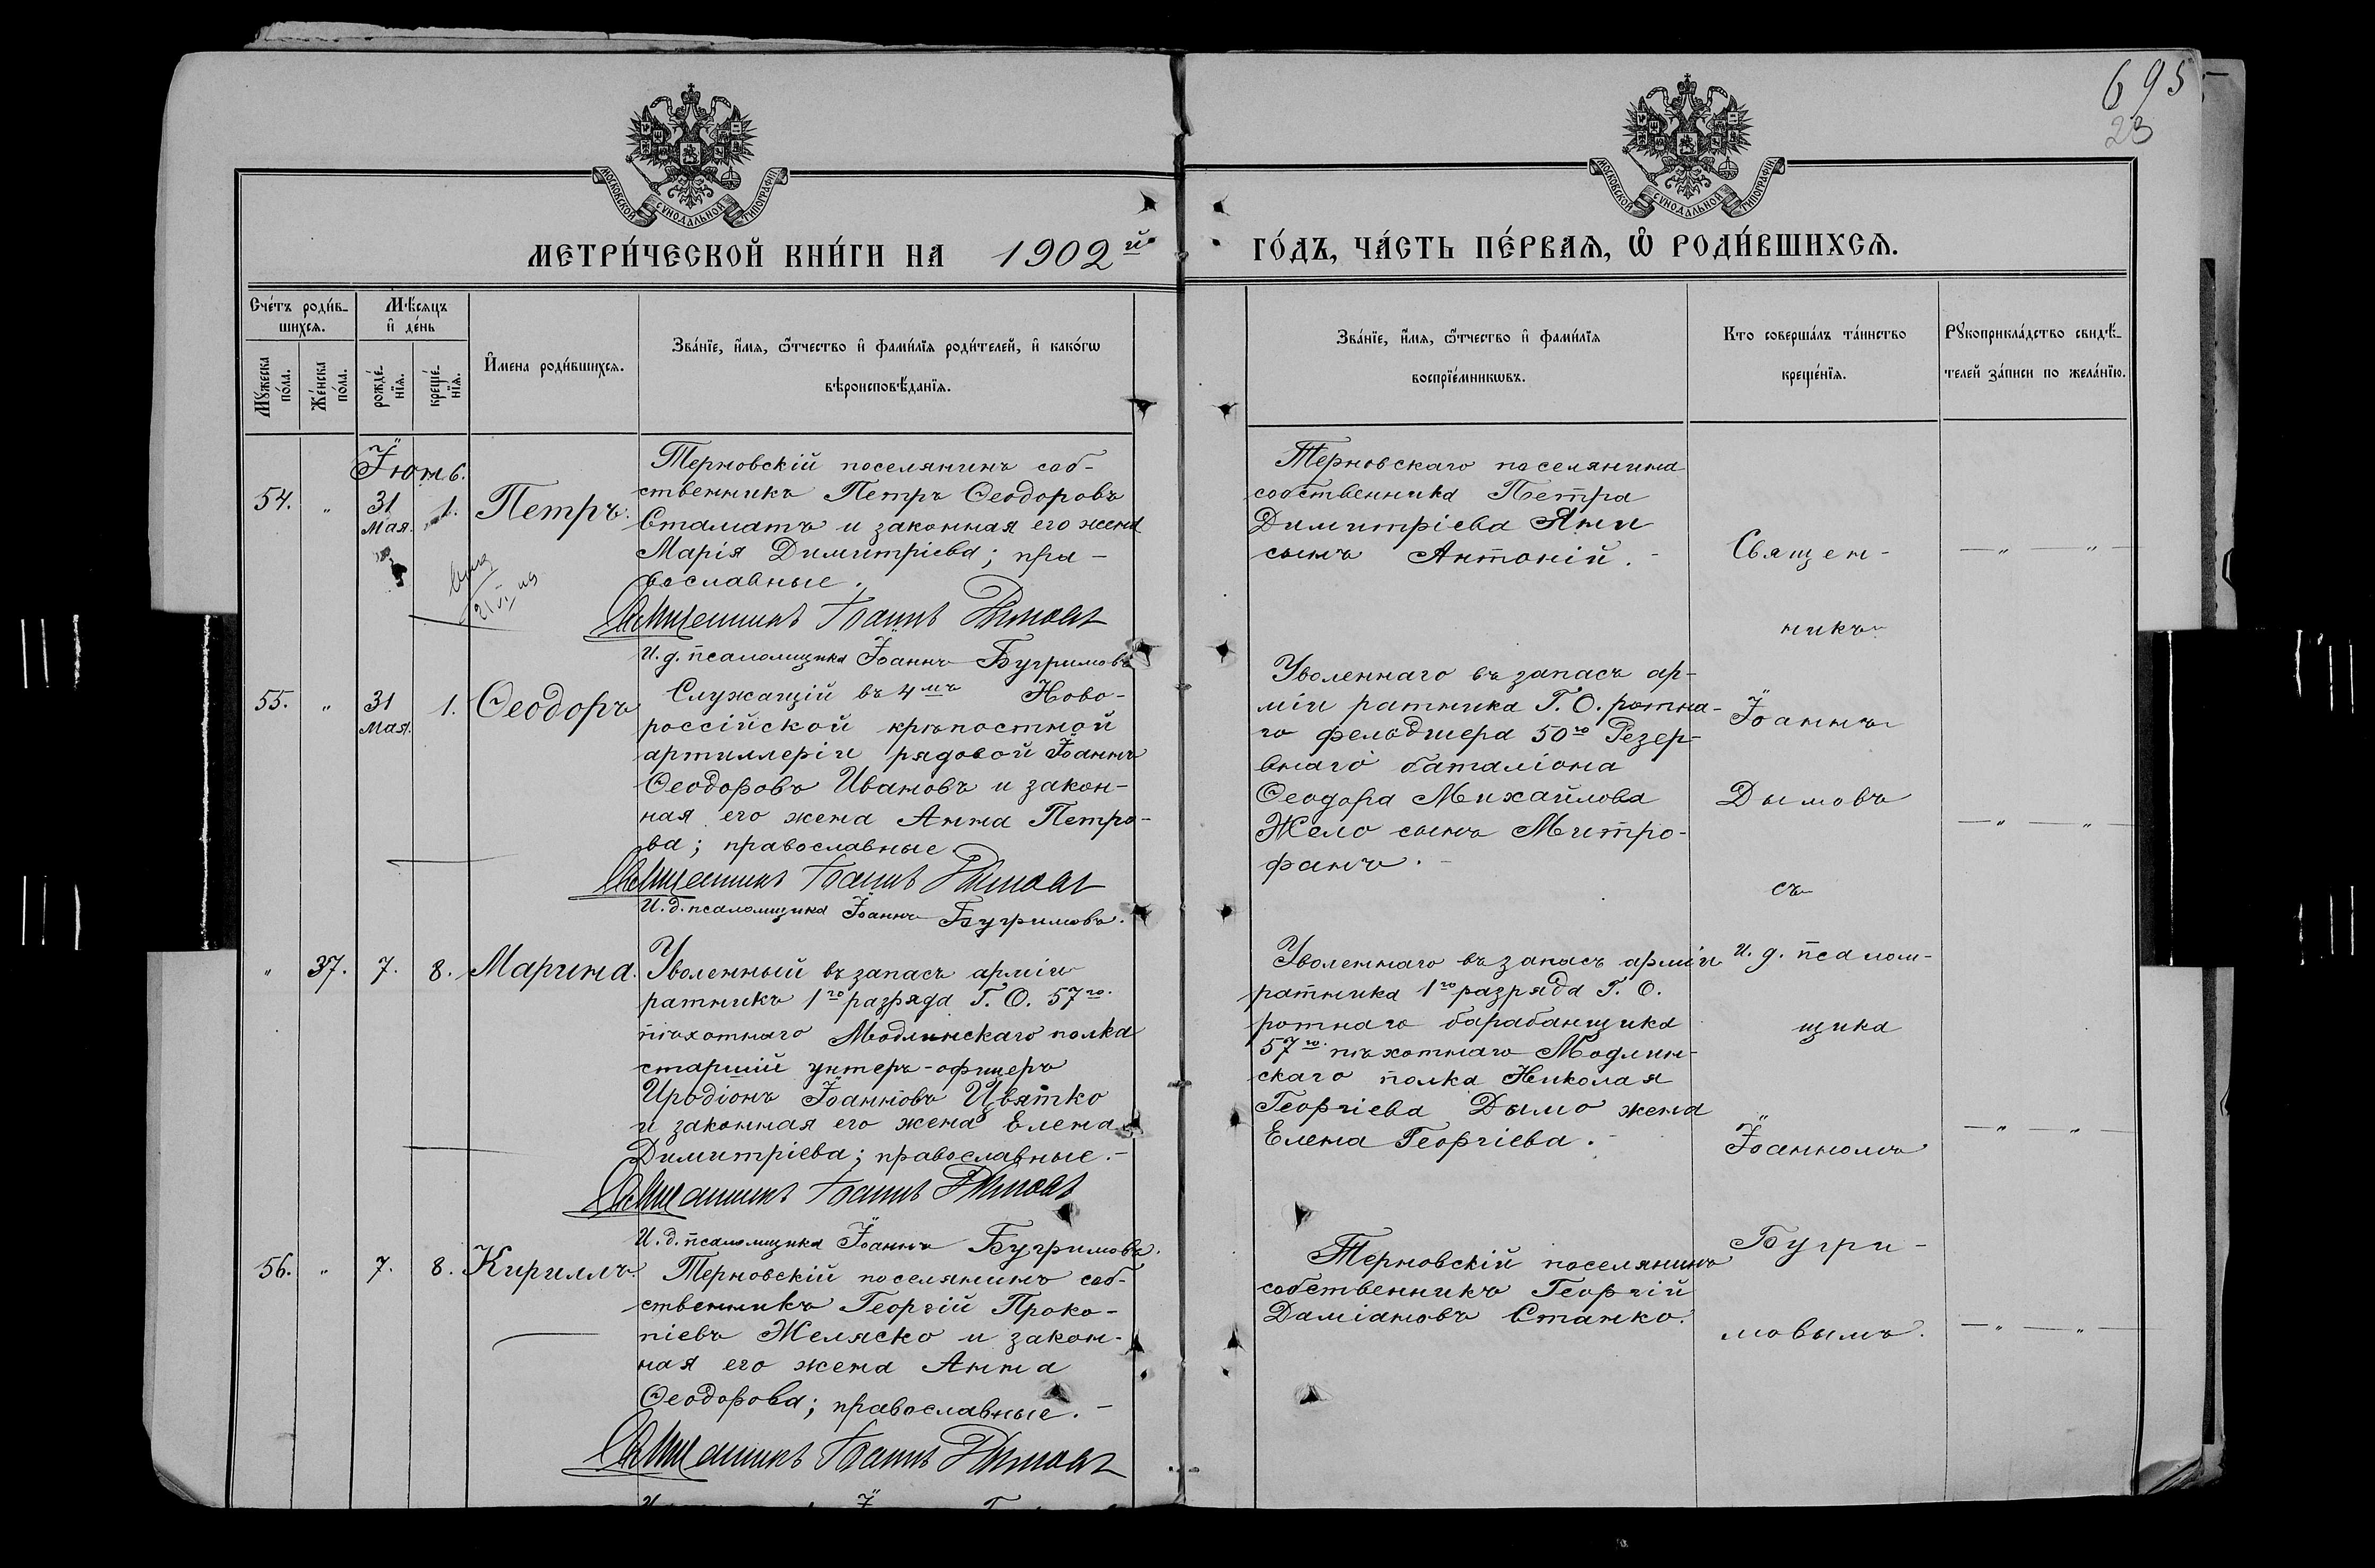 695
23
МОСКОВСКОЙ СѴНОДАЛЬНОЙ ТИПОГРАФІИ
МОСКОВСКОЙ СѴНОДАЛЬНОЙ ТИПОГРАФІИ
МЕТРИ́ЧЕСКОЙ КНИ́ГИ НА 1902й
ГО́ДЪ, ЧА́СТЬ ПЕ́РВАЯ, Ѡ РОДИ́ВШИХСѦ.
Сче́тъ роди́в-
шихсѧ.
Мꙋ́жеска
по́ла.
Же́нска
по́ла.
Мѣ́сѧцъ
и҆ де́нь
рожде́-
нїѧ.
креще́-
нїѧ.
И҆мена роди́вшихсѧ.
Зва́нїе, и҆́мѧ, ѻ҆́тчество и҆ фами́лїѧ роди́телей, и҆ како́гѡ
вѣроисповѣ́данїѧ.
Зва́нїе, и҆́мѧ, ѻ҆́тчество и҆ фами́лїѧ
воспрїе́мникѡвъ.
Кто соверша́лъ та́инство
креще́нїѧ.
Рꙋкоприкла́дство свидѣ́-
телей за́писи по жела́нїю.
Іюнь.
54. " 31 Мая. 1. Петръ.
Терновскій поселянинъ соб-
ственникъ Петръ Ѳеодоровъ
Стаматъ и законная его жена
Марія Димитріева; пра-
вославные.
Священникъ Іоаннъ Дымовъ
И. д. псаломщика Іоаннъ Бугримовъ
Терновскаго поселянина
собственника Петра
Димитріева Яни
сынъ Антоній.-
55. " 31 Мая. 1. Ѳеодоръ
Служащій въ 4мъ Ново-
россійской крѣпостной
артиллеріи рядовой Іоаннъ
Ѳеодоровъ Ивановъ и закон-
ная его жена Анна Петро-
ва; православные.
Священникъ Іоаннъ Дымовъ
И. д. псаломщика Іоаннъ Бугримовъ.
Уволеннаго въ запасъ ар-
міи ратника Г. О. ротна-
го фельдшера 50го Резер-
внаго баталіона
Ѳеодора Михайлова
Жело сынъ Митро-
фанъ.-
" 37. 7. 8. Марина.
Уволенный въ запасъ арміи
ратникъ 1го разряда Г. О. 57го
пѣхотнаго Модлинскаго полка
старшій унтеръ-офицеръ
Иродіонъ Іоанновъ Цвятко
и законная его жена Елена
Димитріева; православные.-
Священникъ Іоаннъ Дымовъ
И. д. псаломщика Іоаннъ Бугримовъ.
Уволеннаго въ запасъ арміи
ратника 1го разряда Г. О.
ротнаго барабанщика
57го пѣхотнаго Модлин-
скаго полка Николая
Георгіева Дымо жена
Елена Георгіева.-
56. " 7. 8. Кириллъ.
Терновскій поселянинъ соб-
ственникъ Георгій Проко-
піевъ Желяско и закон-
ная его жена Анна
Ѳеодорова; православные.-
Священникъ Іоаннъ Дымовъ
Терновскій поселянинъ
собственникъ Георгій
Даміановъ Станко.
Священ-
никъ
Іоаннъ
Дымовъ
съ
и. д. псалом-
щика
Іоанномъ
Бугри-
мовымъ.